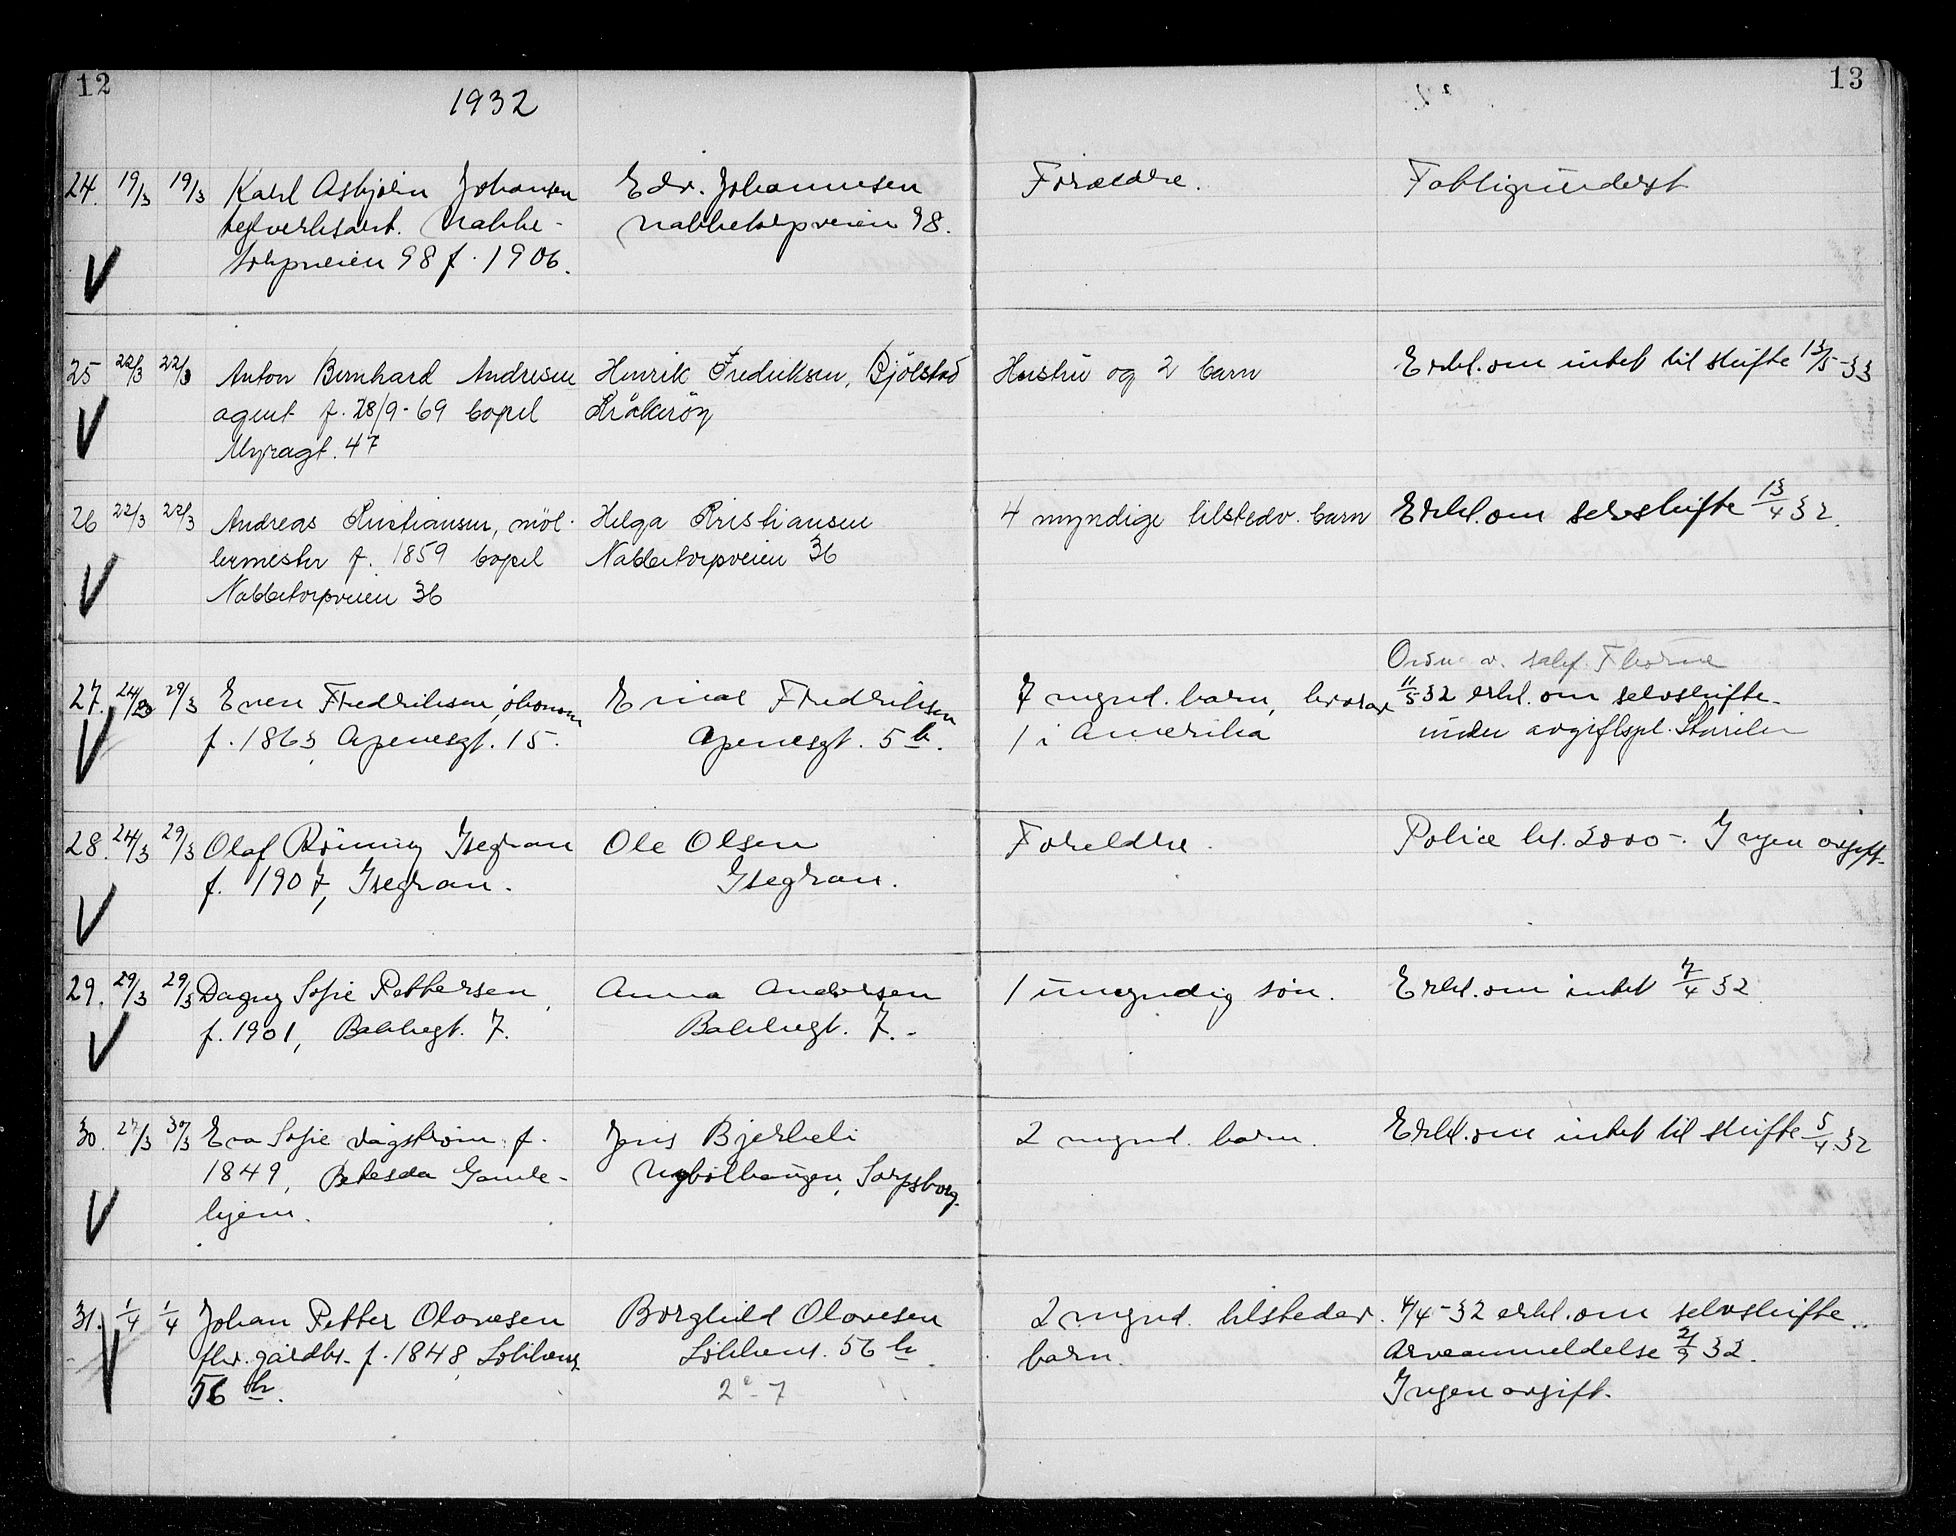 12
1932
13
24. 19/3 19/3 Karl Asbjørn Johansen
teglverksarb. Nabbe-
torpveien 98 f. 1906.
Edv. Johannesen
Nabbetorpveien 98.
Forældre.
Fattigunderst
25 22/3 22/3 Anton Bernhard Andresen
agent f. 28/9-69 bopel
Myragt. 47
Henrik Fredriksen, Bjölstad
Kråkeröy
Hustru og 2 barn
Erkl. om intet til skifte 13/5-33
26 22/3 22/3 Andreas Kristiansen, möl-
lermester f. 1859 bopel
Nabbetorpveien 36
Helga Kristiansen
Nabbetorpveien 36
4 myndige tilstedv. barn
Erkl. om selvskifte 13/4 32.
27. 24/3 29/3 Even Fredriksen, økonom
f. 1863, Apenesgt. 15.
Einar Fredriksen
Apenesgt. 5 b.
7 mynd. barn, hvorav
1 i Amerika
Ordn. v. sakf. Thorne
11/5 32 erkl. om selvskifte
under avgiftspl.
28. 24/3 29/3 Olaf Rönning Isegran
f. 1907, Isegran.
Ole Olsen
Isegran.
Foreldre.
Police kr. 2000-. Ingen avgift.
29. 29/3 29/3 Dagny Sofie Pettersen,
f. 1901, Bakkegt. 7.
Anna Andersen
Bakkegt. 7.-
1 umyndig sön.
Erkl. om intet 7/4 32
30. 27/3 30/3 Eva Sofie Vågström f.
1849, Betesda Gamle-
hjem.
Jens Bjerkeli
Nybolhaugen, Sarpsborg.
2 mynd. barn.
Erkl. om intet til skifte 5/4 32
31. 1/4 1/4 Johan Petter Olavesen
fhv. gårdbr. f. 1848,
56 b.
Borghild Olavesen
56 b.
2 - 7
2 mynd. tilstedev.
barn.
4/4-32 erkl. om selvskifte.
Arveanmeldelse 2/9 32.
Ingen avgift.